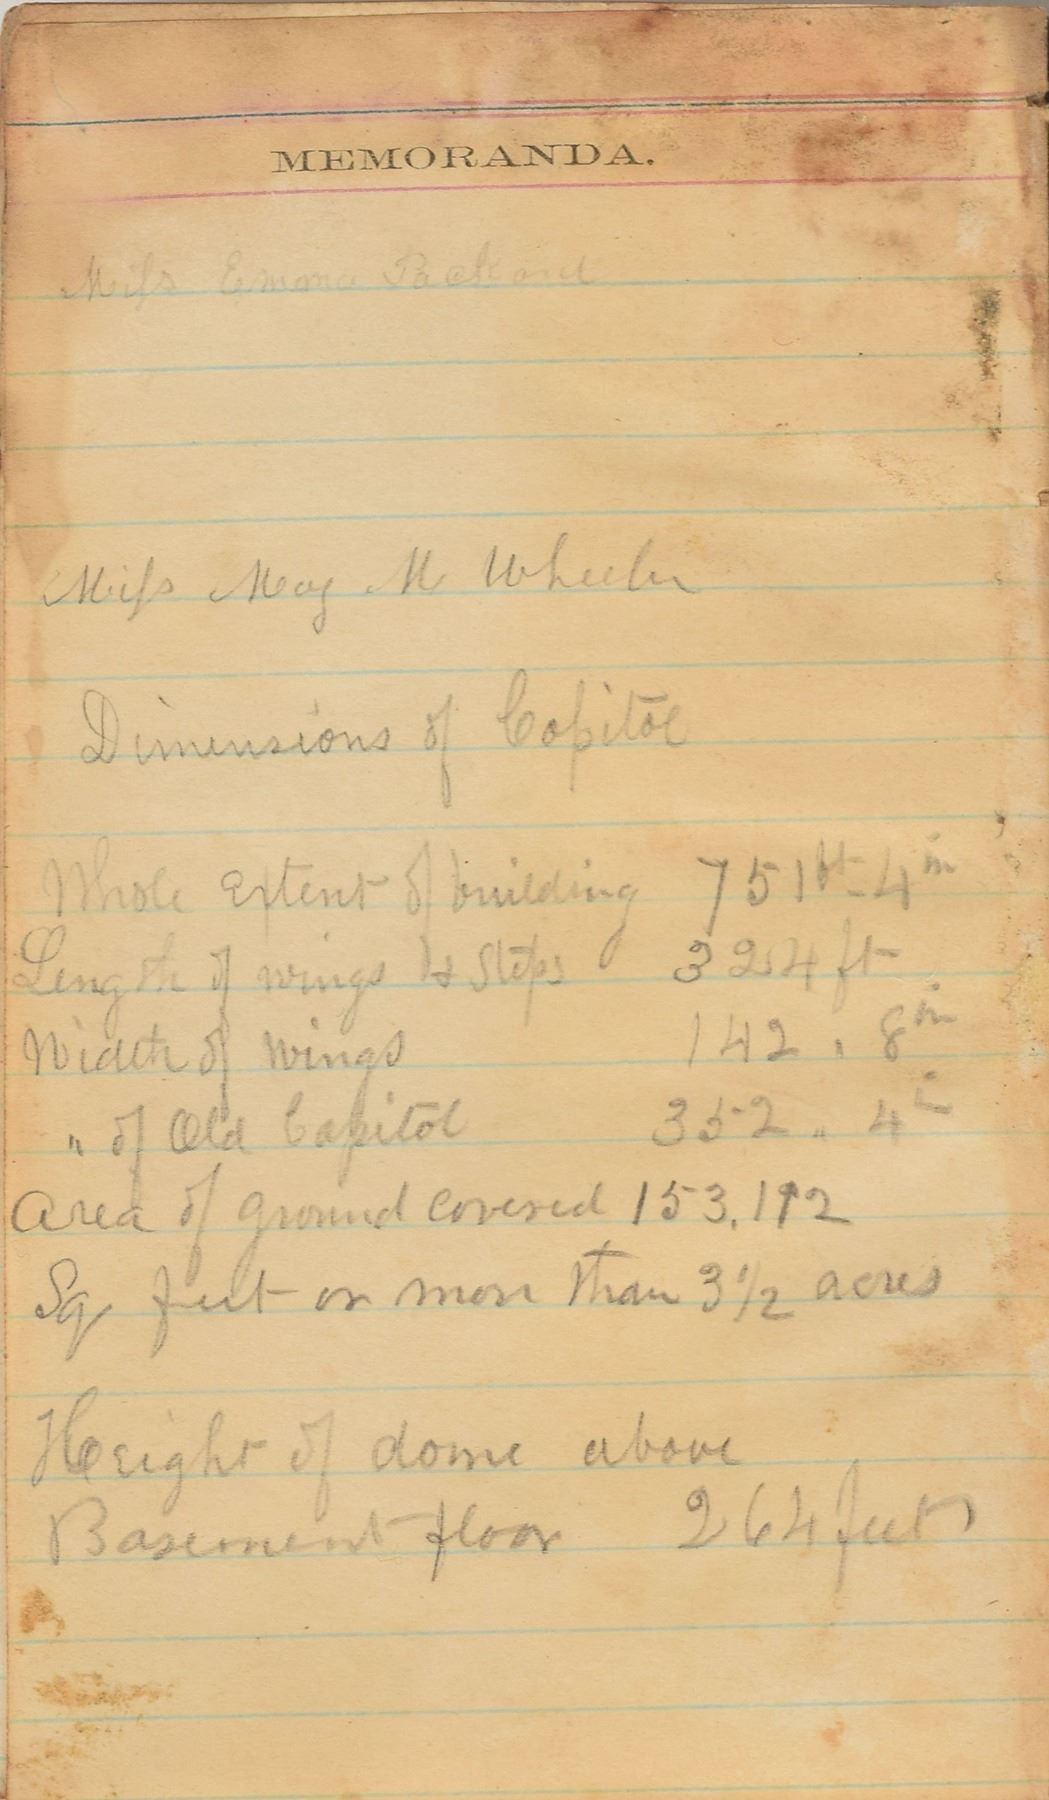 MEMORANDA.
Miss Emma Packard
Miss May M Wheeler
Dimensions of Capitol
Whole Extent of building 751ft-4in
Length of wings & Steps 324 ft
Width of Wings 142 " 8in
" of Old Capitol 352 " 4in
Area of ground covered 153,112
Sq feet or more than 3 1/2 acres
Height of dome above
Basement floor 264 feet